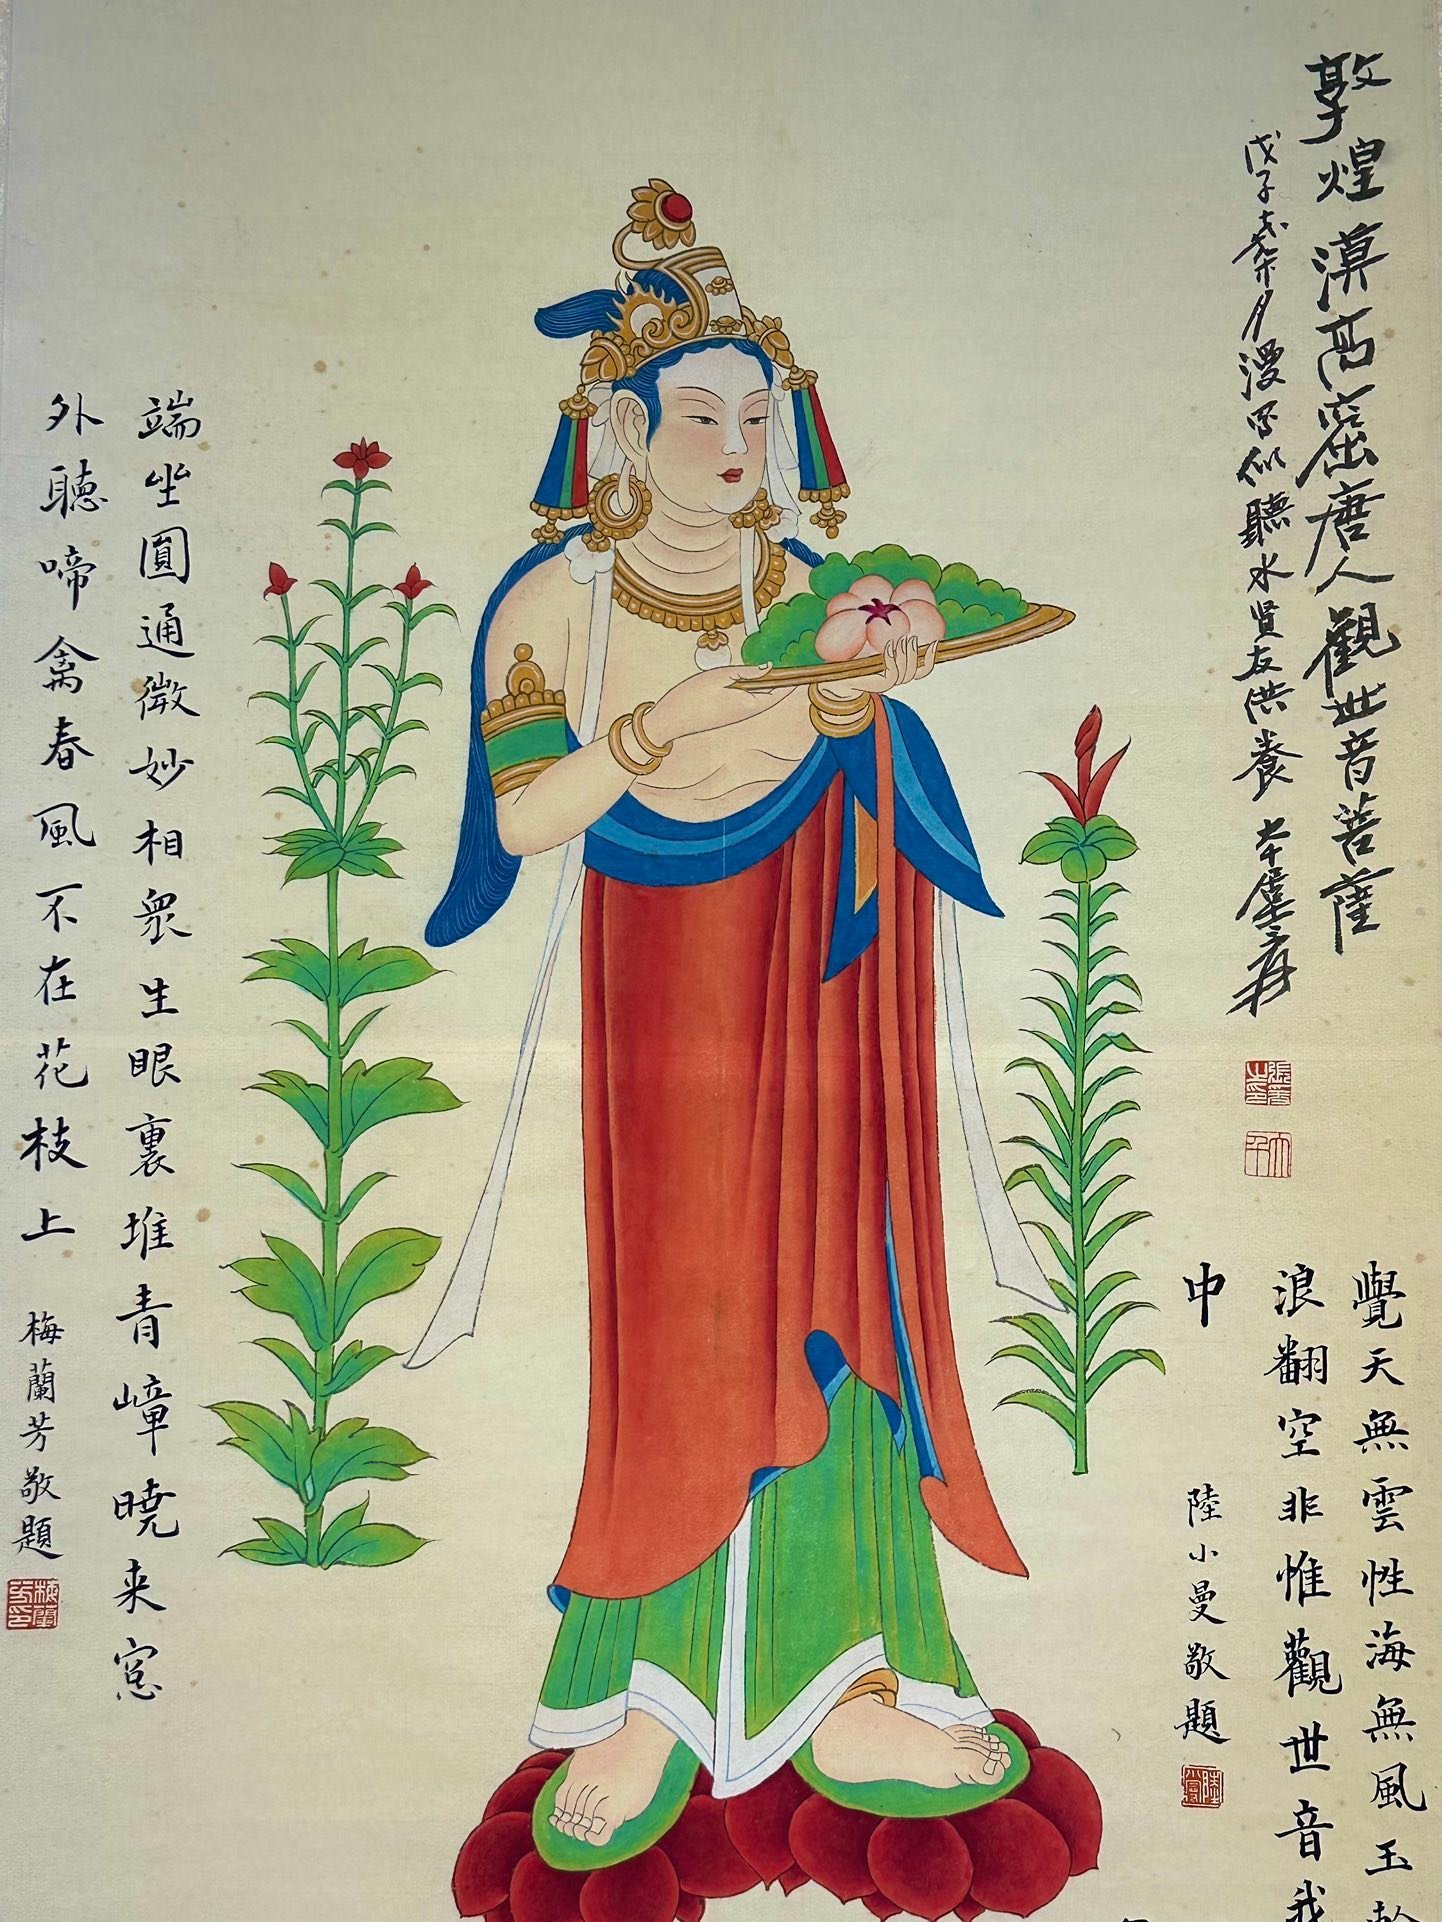 敦煌漠高窟唐人觀世音菩薩
戊子嘉平月漫寫似聽水賢友供養 大千張爰
張爰之印
大千
覺天無雲性海無風玉
浪翻空非惟觀世音我
中
陸小曼敬題
端坐圓通微妙相衆生眼裏堆青嶂曉来窓
外聽啼禽春風不在花枝上
梅蘭芳敬題